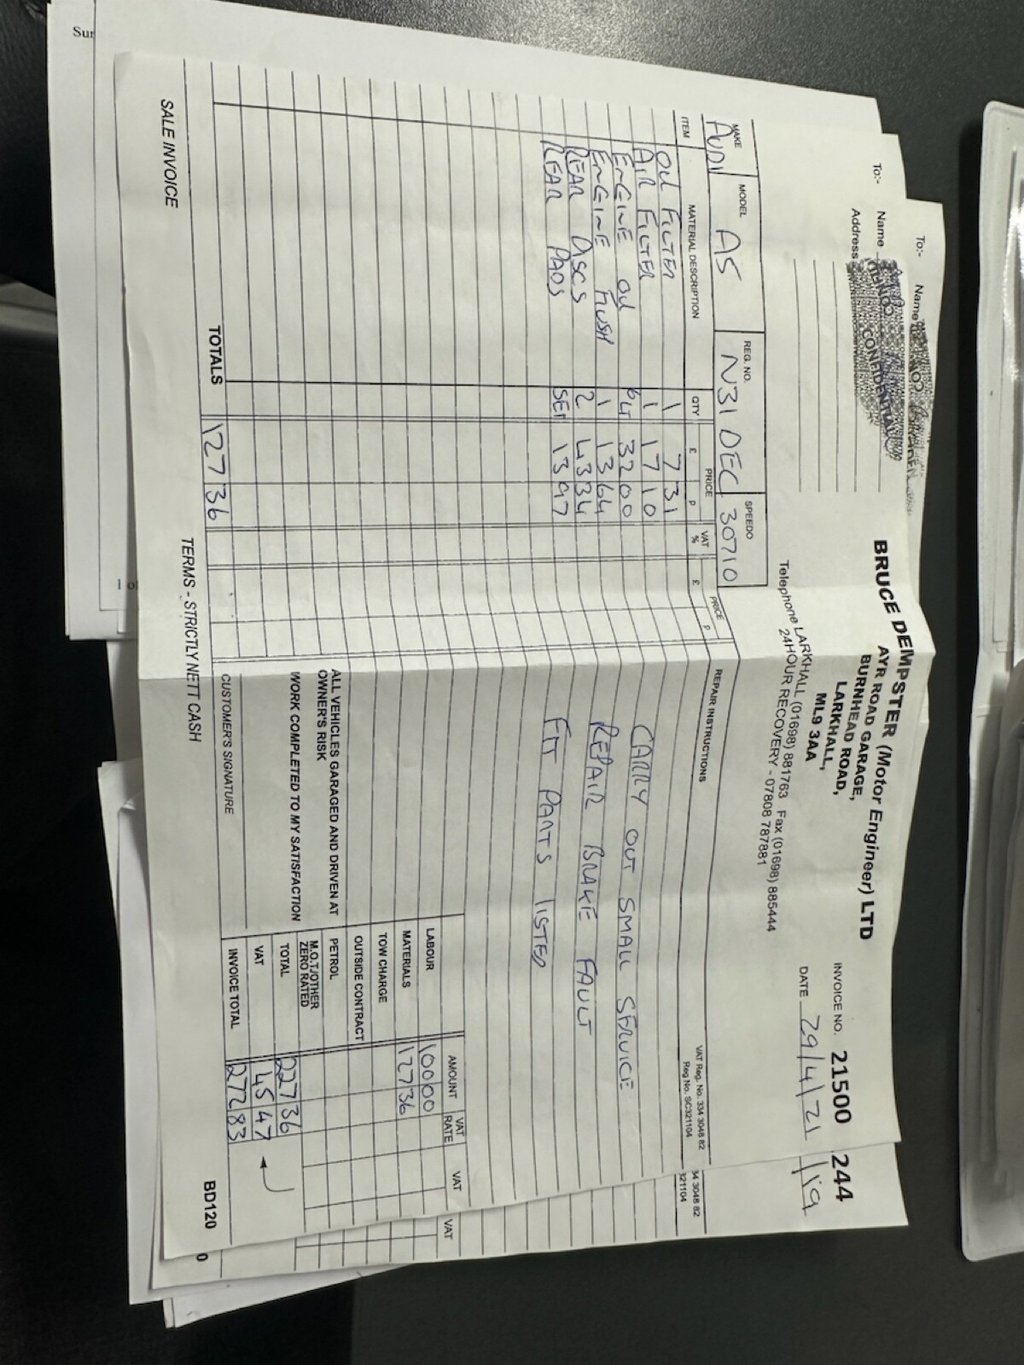 BRUCE DEMPSTER (Motor Engineer) LTD
AYR ROAD GARAGE,
BURNHEAD ROAD,
LARKHALL,
ML9 3AA
Telephone LARKHALL (01698) 881763 Fax (01698) 885444
24HOUR RECOVERY - 07808 787881
INVOICE NO. 21500
DATE 29/4/21
To:-
Name
Address
CONFIDENTIAL
VAT Reg. No. 334 3048 82
Reg No. SC321104
MAKE MODEL REG. NO. SPEEDO
AUDI A5 N31 DEC 30710
ITEM MATERIAL DESCRIPTION QTY PRICE VAT PRICE
£ p % £ p
OIL FILTER 1 7 31
AIR FILTER 1 17 10
ENGINE OIL 6LT 32 00
ENGINE FLUSH 1 13 64
REAR DISCS 2 43 34
REAR PADS SET 13 97
TOTALS 127 36
REPAIR INSTRUCTIONS
CARRY OUT SMALL SERVICE
REPAIR BRAKE FAULT
FIT PARTS LISTED
AMOUNT VAT RATE VAT
LABOUR 100 00
MATERIALS 127 36
TOW CHARGE
OUTSIDE CONTRACT
PETROL
M.O.T./OTHER
ZERO RATED
TOTAL 227 36
VAT 45 47
INVOICE TOTAL 272 83
ALL VEHICLES GARAGED AND DRIVEN AT
OWNER'S RISK
WORK COMPLETED TO MY SATISFACTION
CUSTOMER'S SIGNATURE
SALE INVOICE
TERMS - STRICTLY NETT CASH
BD120
To:-
Name
244
/19
34 3048 82
321104
VAT
0
Sur
1 of